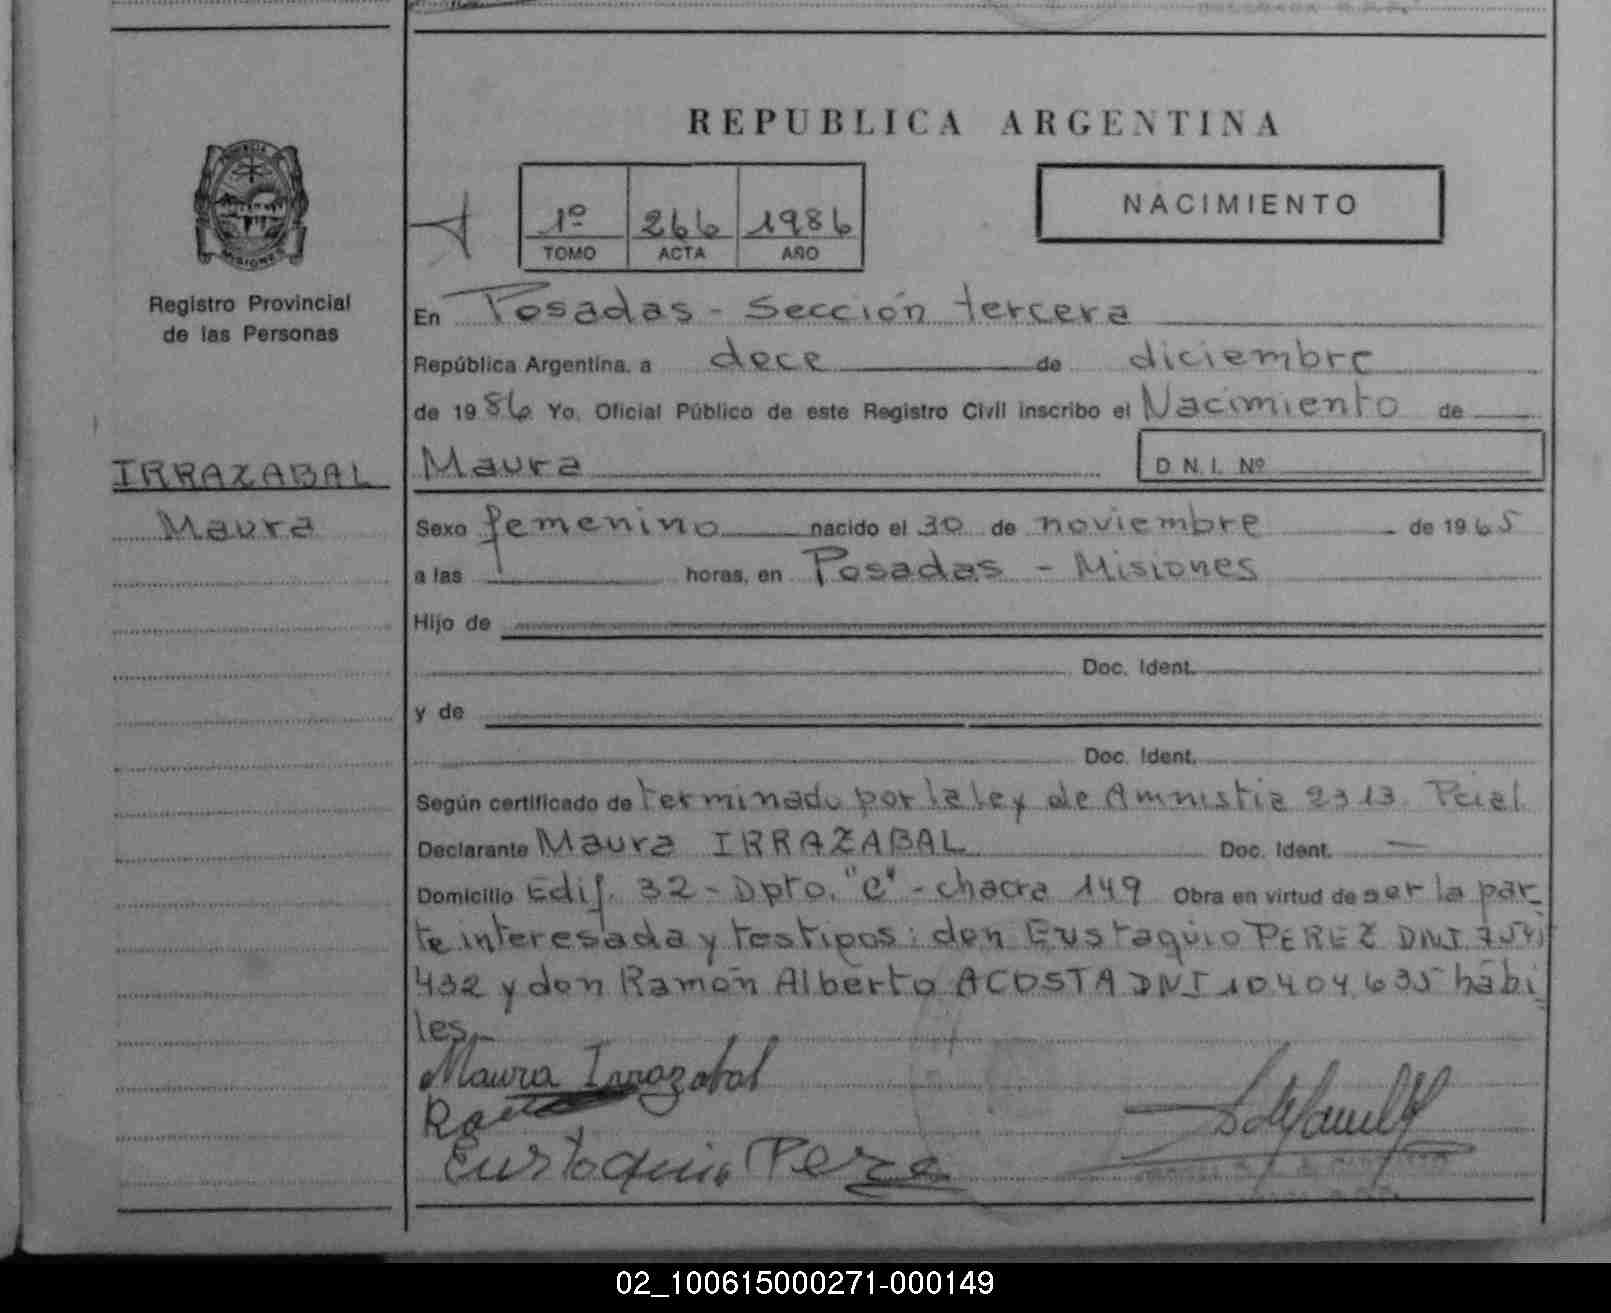 REPUBLICA ARGENTINA
PROVINCIA
MISIONES
Registro Provincial
de las Personas
1º 266 1986
TOMO ACTA AÑO
NACIMIENTO
En Posadas - Sección tercera
República Argentina, a doce de diciembre
de 1986 Yo, Oficial Público de este Registro Civil inscribo el Nacimiento de
IRRAZABAL
Maura
Maura D N.I. Nº
Sexo femenino nacido el 30 de noviembre de 1965
a las horas, en Posadas - Misiones
Hijo de
Doc. Ident.
y de
Doc. Ident.
Según certificado de terminado por la ley de Amnistia 2313 Pcial
Declarante Maura IRRAZABAL Doc. Ident. —
Domicilio Edif. 32 - Dpto. "C" - chacra 149 Obra en virtud de ser la par_
te interesada y testigos: don Eustaquio PEREZ DNI 754
432 y don Ramón Alberto ACOSTA DNI 10404635 hábi
les_
Maura Irrazabal
Eustaquio Perez
02_100615000271-000149